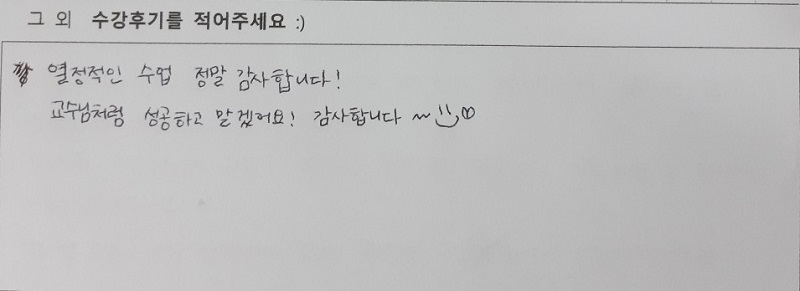 그 외 수강후기를 적어주세요 :)
열정적인 수업 정말 감사합니다!
교수님처럼 성공하고 말겠어요! 감사합니다 ~